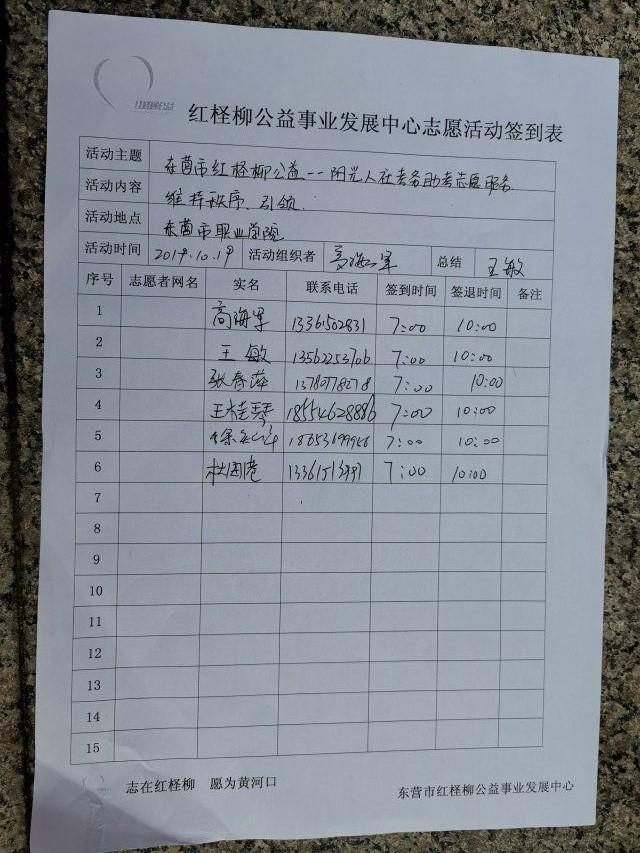 红柽柳公益
红柽柳公益事业发展中心志愿活动签到表
活动主题 东营市红柽柳公益--阳光人社考务助考志愿服务
活动内容 维持秩序、引领
活动地点 东营市职业学院
活动时间 2019.10.19 活动组织者 高海军 总结 王敏
序号 志愿者网名 实名 联系电话 签到时间 签退时间 备注
1 高海军 13361502831 7:00 10:00
2 王敏 13562253706 7:00 10:00
3 张春萍 13780778278 7:00 10:00
4 王桂琴 18554628886 7:00 10:00
5 徐 18653199946 7:00 10:00
6 杜国 13361513991 7:00 10:00
7
8
9
10
11
12
13
14
15
志在红柽柳 愿为黄河口 东营市红柽柳公益事业发展中心